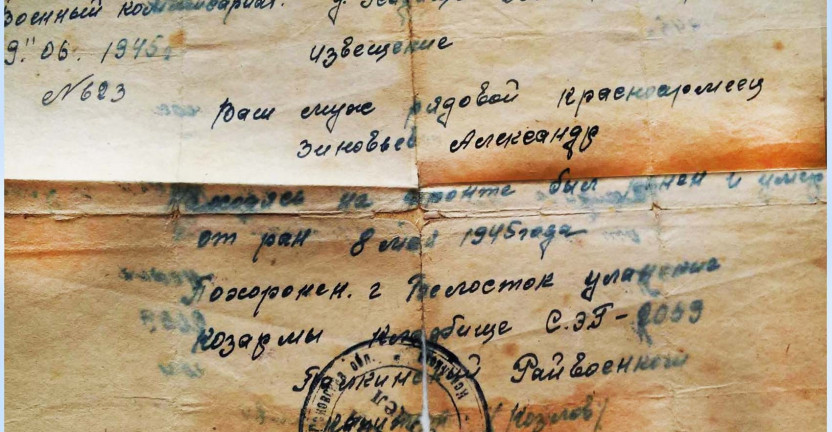 Военный комиссариат. г.
9." 06. 1945г
извещение
N 623
Ваш муж рядовой красноармеец
Зиновьев Александр
Находясь на фронте был ранен и умер
от ран 8 мая 1945 года
Похоронен. г Белосток уланские
козармы кладбище С.ЭГ-2039
Райвоенком
Козлов/
обл.